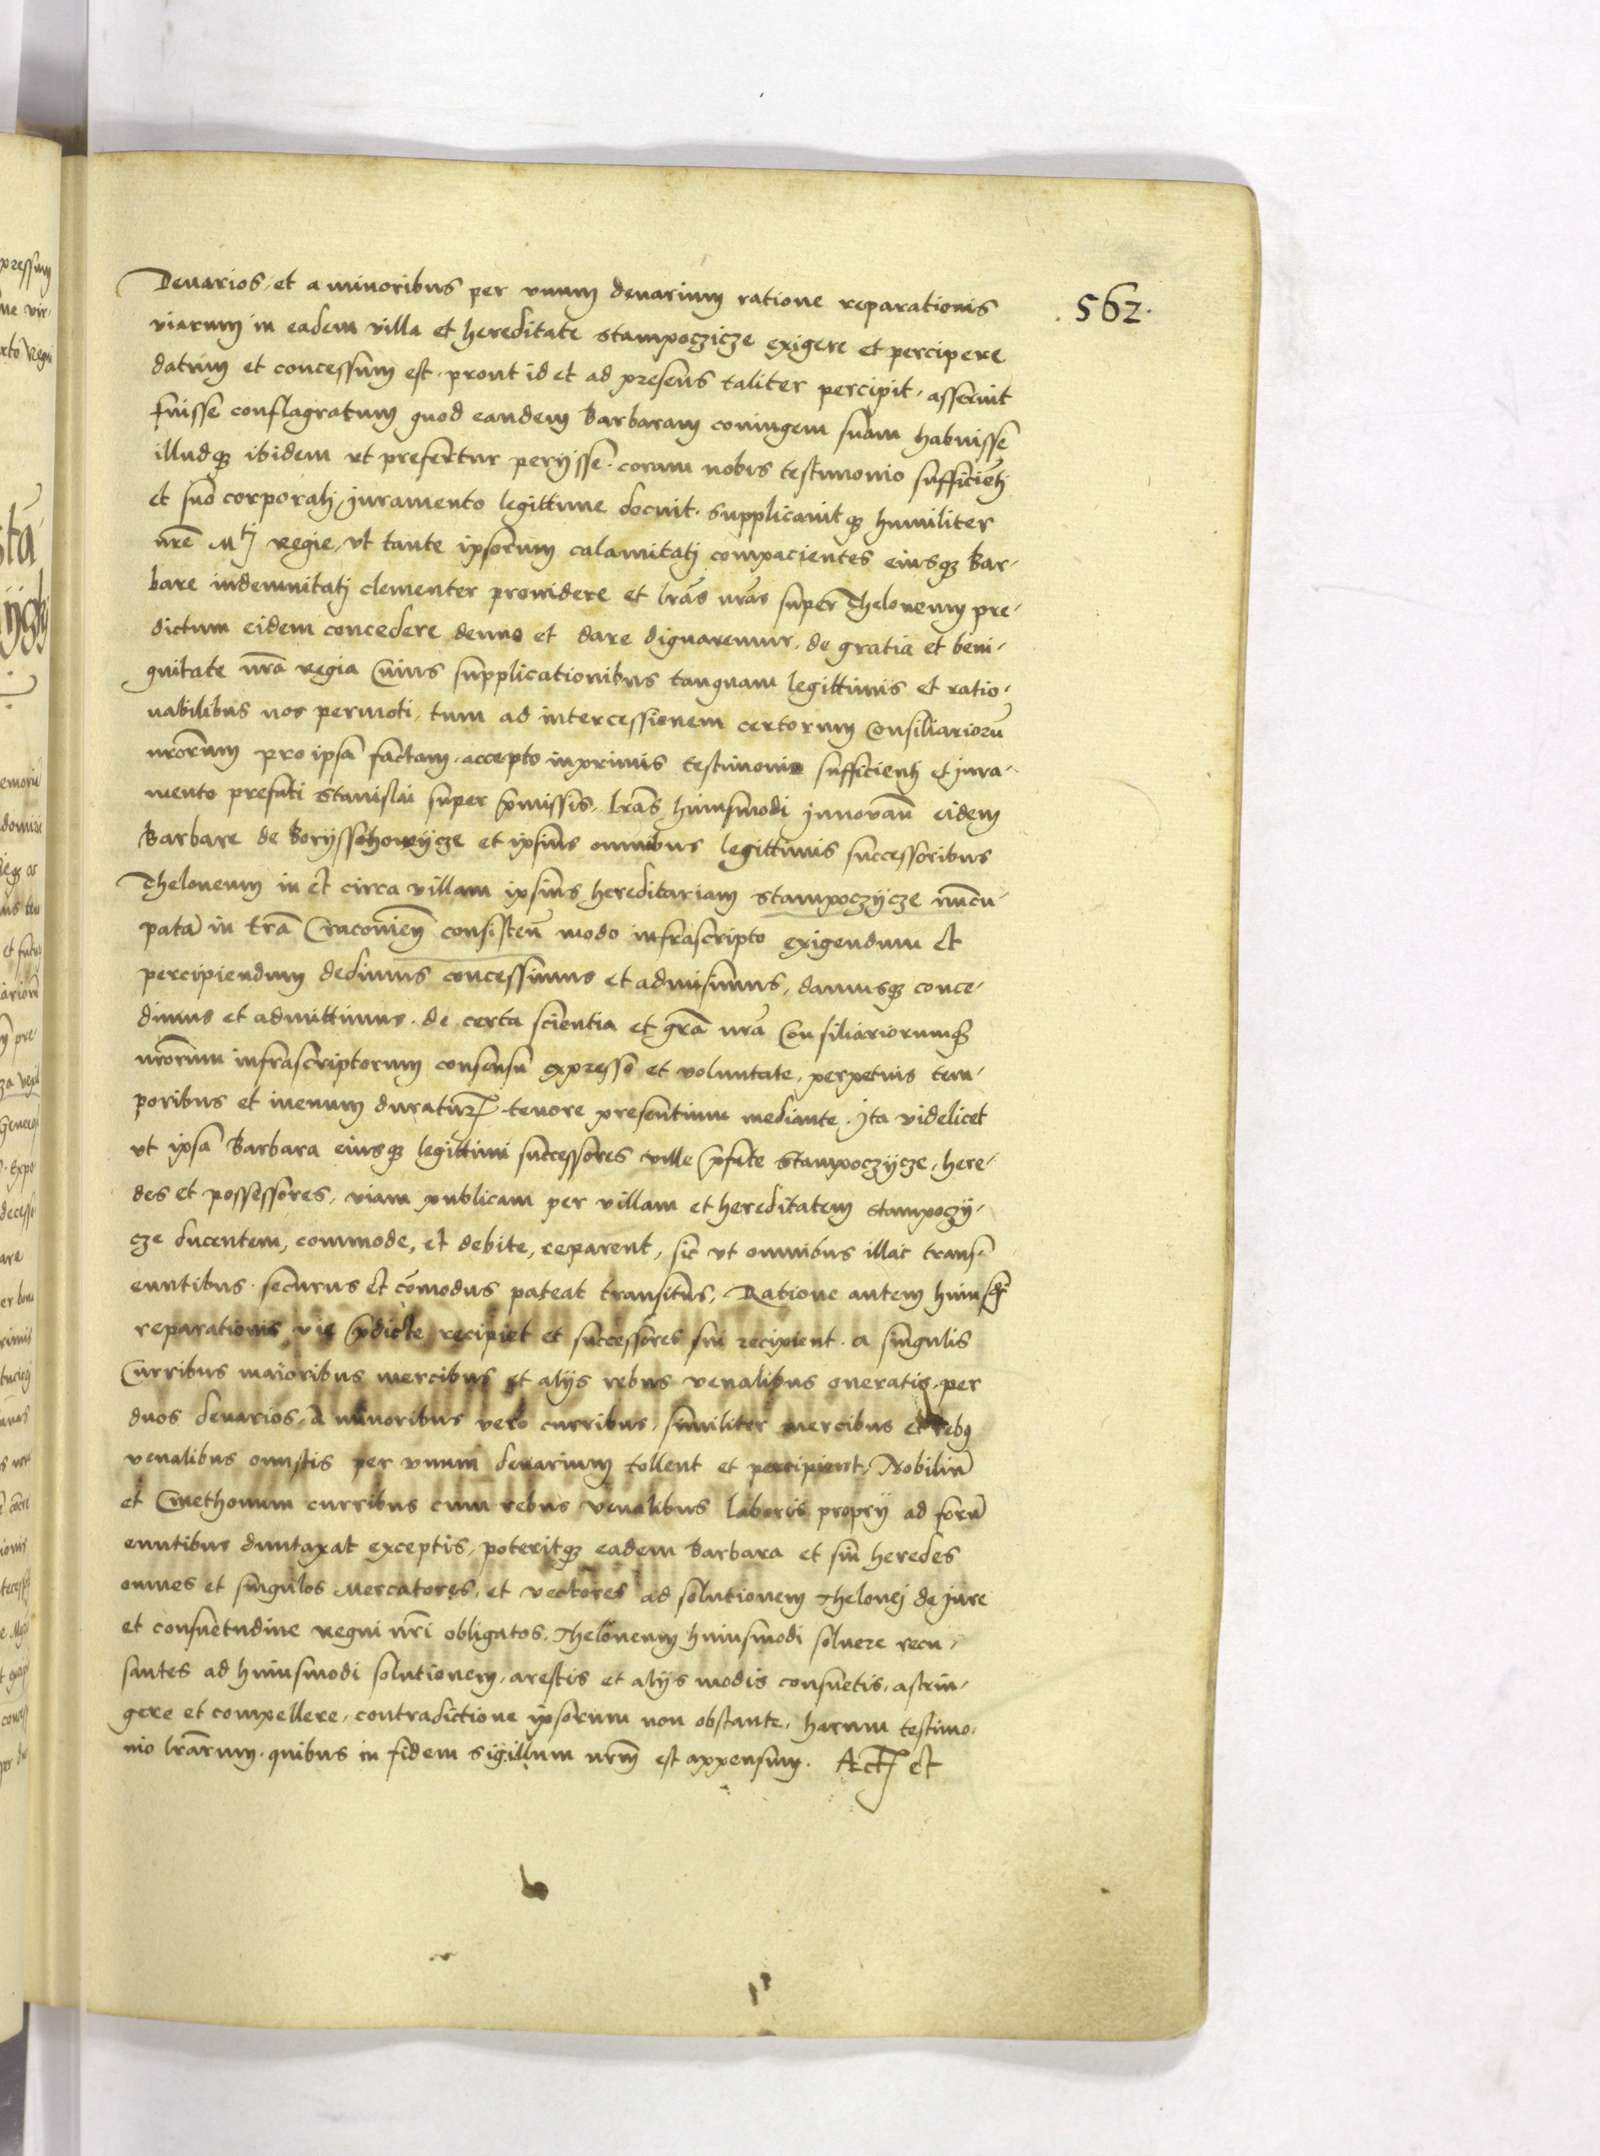 562.
Denarios, et a minoribus per vnum denarium ratione reparationis
viarum in eadem villa et hereditate Stampoczicze exigere et percipere
datum et concessum est. prout id et ad presens taliter percipit. asseruit
fuisse conflagratum quod eandem Barbaram coniugem suam habuisse
illudq; ibidem vt prefertur perijsse. coram nobis testimonio sufficien̄tj
et suo corporalj juramento legittime docuit. Supplicauitq; humiliter
nr̄e Mtj Regie, vt tante ipsorum calamitatj compacientes eiusq; Bar-
bare indemnitatj clementer prouidere et lrās nrās super Theloneum pre-
dictum eidem concedere denuo et dare dignaremur, de gratia et beni-
gnitate nrā Regia Cuius supplicationibus tanquam legittimis et ratio-
nabilibus nos permoti, tum ad intercessionem certorum Consiliarioru̅
nrōrum pro ipsa factam. accepto inprimis testimonio sufficientj et jura-
mento prefati Stanislai super p̄missis, lrās huiusmodi jnnouan̄ eidem
Barbare de Boryssthowycze et ipsius omnibus legittimis successoribus
Theloneum in et circa villam ipsius hereditariam Stampoczycze nu̅cu-
pata̅ in trā̅ Cracouien̄ consisten̄ modo infrascripto exigendum et
percipiendum dedimus concessimus et admisimus, damusq; conce-
dimus et admittimus. de certa scientia et grā nrā Consiliariorumq;
nrōrum infrascriptorum consensu expresso et voluntate, perpetuis tem-
poribus et in euum duratur̄. tenore presentium mediante. Jta videlicet
vt ipsa Barbara eiusq; legittimi successores ville p̄fate Stampoczycze, here-
des et possessores, viam publicam per villam et hereditatem Stampoczy-
cze ducentem, commode, et debite, reparent, sic vt omnibus illac trans-
euntibus. securus et co̅modus pateat transitus, Ratione autem huiusq;
reparationis vie p̄dicte recipiet et successores sui recipient. a singulis
Curribus maioribus mercibus et alijs rebus venalibus oneratis. per
duos denarios, a minoribus vero curribus, similiter mercibus et rebus
venalibus onustis per vnum denarium tollent et percipient, Nobiliu̅
et Cmethonum curribus cum rebus venalibus laboris proprij ad foru̅
euntibus duntaxat exceptis, poteritq; eadem Barbara et sui heredes
omnes et singulos Mercatores, et vectores ad solutionem Thelonej de jure
et consuetudine regni nrī obligatos, Theloneum huiusmodi soluere recu-
santes ad huiusmodi solutionem, arestis et alijs modis consuetis, astrin-
gere et compellere, contradictione ipsorum non obstante, harum testimo-
nio lrārum. quibus in fidem Sigillum nrm̄ est appensum. Act̄ et